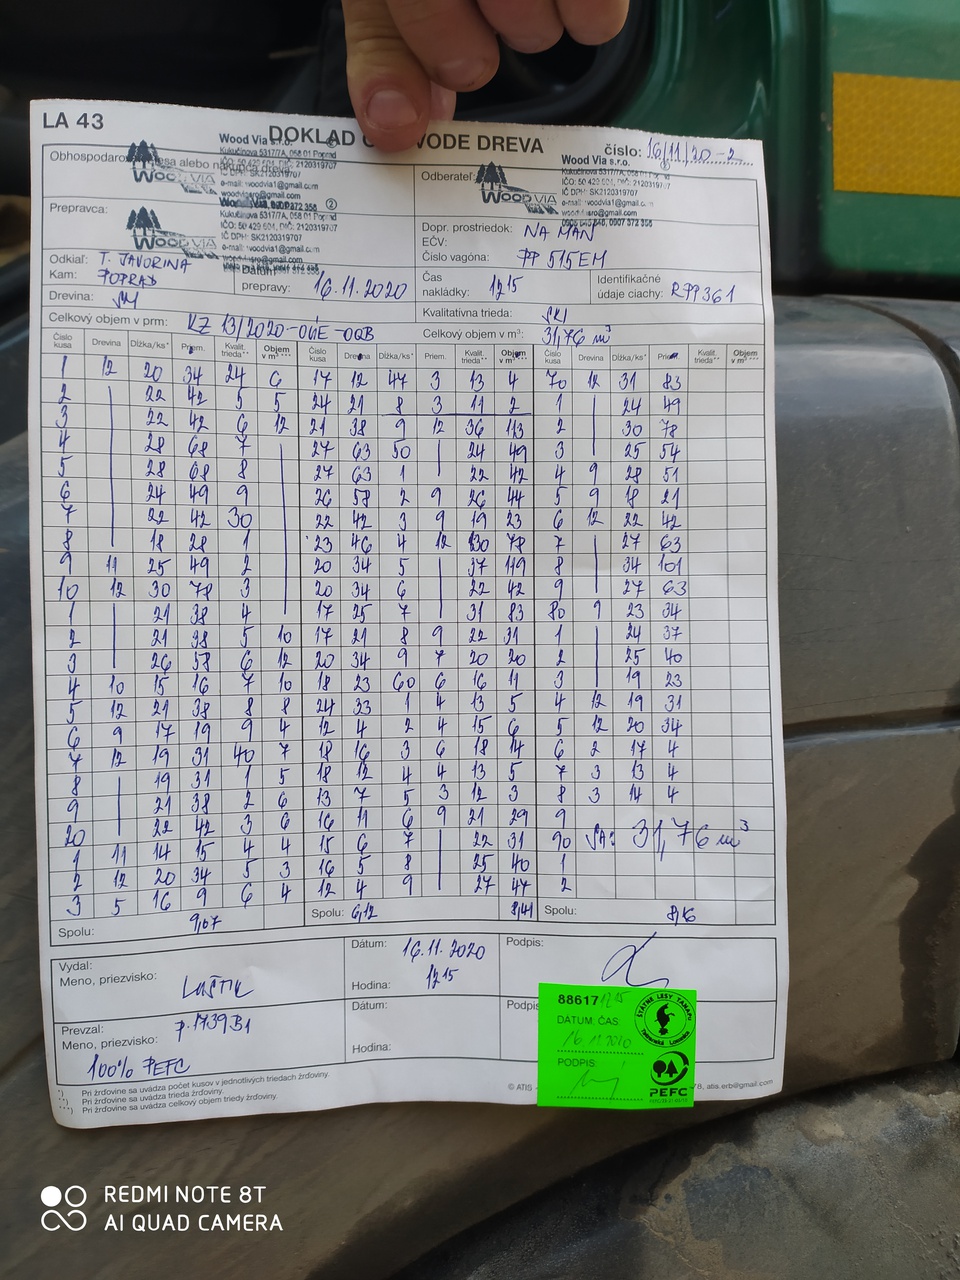 LA 43
DOKLAD O VODE DREVA
číslo: 16/11/20-2
Wood Via s.r.o.
Kukučínova 5317/7A, 058 01 Poprad
IČO: 50 429 604, DIČ: 2120319707
IČ DPH: SK2120319707
e-mail: woodvia1@gmail.com
Obhospodarov lesa alebo nákupca dreva
WOOD VIA
Odberateľ:
WOOD VIA
Wood Via s.r.o.
Kukučínova 5317/7A, 058 01 Poprad
IČ DPH: SK2120319707
e-mail: woodvia1@gmail.com
Prepravca:
WOOD VIA
Kukučínova 5317/7A, 058 01 Poprad
IČO: 50 429 604, DIČ: 2120319707
IČ DPH: SK2120319707
e-mail: woodvia1@gmail.com
Dopr. prostriedok: NA MAN
EČV:
Číslo vagóna: PP 515EM
Odkiaľ: T. JAVORINA
Kam: POPRAD
Dátum prepravy: 16.11.2020
Čas nakládky: 12 15
Identifikačné údaje ciachy: R99361
Drevina: SM
Kvalitatívna trieda:
Celkový objem v prm: KZ 13/2020-OÚE-OQB
Celkový objem v m³: 31,76 m³
Číslo kusa Drevina Dĺžka/ks* Priem. Kvalit. trieda** Objem v m³*** Číslo kusa Drevina Dĺžka/ks* Priem. Kvalit. trieda** Objem v m³*** Číslo kusa Drevina Dĺžka/ks* Priem. Kvalit. trieda** Objem v m³***
1 12 20 34 24 6 17 12 47 3 13 4 70 12 31 83
2 22 42 5 5 24 21 8 3 11 2 1 24 49
3 22 42 6 12 21 38 9 12 36 113 2 30 78
4 28 68 7 27 63 50 24 49 3 25 54
5 28 68 8 27 63 1 22 42 4 9 28 51
6 24 49 9 26 58 2 9 26 44 5 9 18 21
7 22 42 30 22 42 3 9 19 23 6 12 22 42
8 18 28 1 23 46 4 12 30 78 7 27 63
9 11 25 49 2 20 34 5 37 119 8 34 101
10 12 30 78 3 20 34 6 22 42 9 27 63
1 21 38 4 17 25 7 31 83 80 9 23 34
2 21 38 5 10 17 21 8 9 22 31 1 24 37
3 26 58 6 12 20 34 9 7 20 20 2 25 40
4 10 15 16 7 10 18 23 60 6 16 11 3 19 23
5 12 21 38 8 8 24 33 1 4 13 5 4 12 19 31
6 9 17 19 9 4 12 4 2 4 15 6 5 12 20 34
7 12 19 31 40 7 18 16 3 6 18 14 6 2 17 4
8 19 31 1 5 18 12 4 4 13 5 7 3 13 4
9 21 38 2 6 13 7 5 3 12 3 8 3 14 4
20 22 42 3 6 16 11 6 9 21 29 9
1 11 14 15 4 4 15 6 7 22 31 90 SA: 31,76 m³
2 12 20 34 5 3 16 5 8 25 40 1
3 5 16 9 6 4 12 4 9 27 47 2
Spolu: 9,07 Spolu: 6,12 8,41 Spolu: 8,16
Vydal:
Meno, priezvisko:
Dátum: 16.11.2020
Hodina: 12 15
Podpis:
Prevzal:
Meno, priezvisko: p. 1739 B1
100% PEFC
Dátum:
Hodina:
Podpis
88617
DÁTUM: ČAS:
16.11.2020
PODPIS:
ŠTÁTNE LESY TANAPU
Tatranská Lomnica
PEFC
*) Pri žrďovine sa uvádza počet kusov v jednotlivých triedach žrďoviny.
**) Pri žrďovine sa uvádza trieda žrďoviny.
***) Pri žrďovine sa uvádza celkový objem triedy žrďoviny.
© ATIS
78, atis.erb@gmail.com
REDMI NOTE 8T
AI QUAD CAMERA